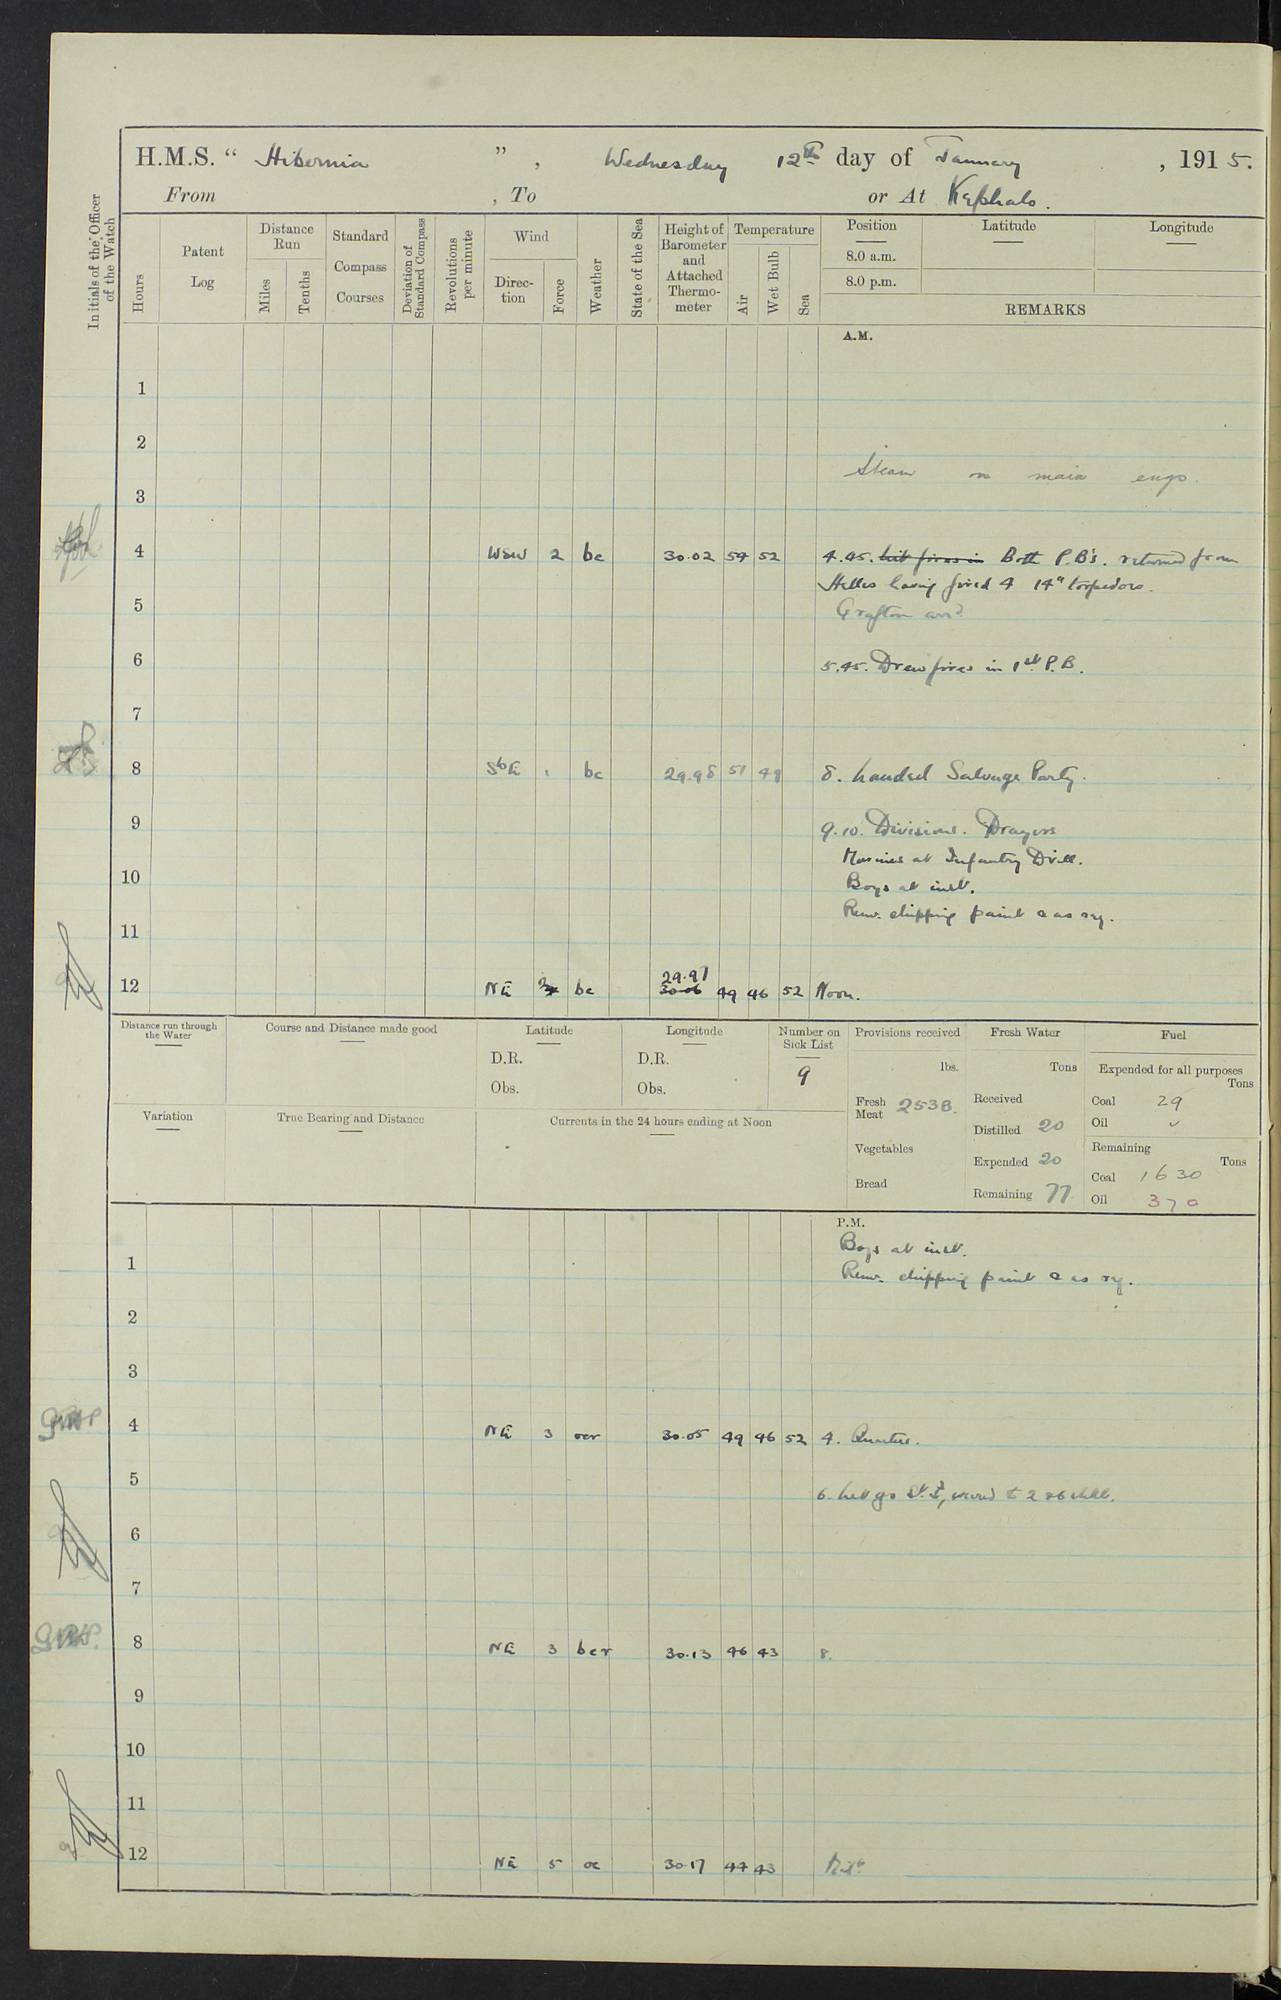 H.M.S. “ Hibernia ” , Wednesday 12th day of January , 1915.
From , To or At Kephalo.
Initials of the Officer of the Watch
Hours
Patent Log
Distance Run
Miles
Tenths
Standard Compass Courses
Deviation of Standard Compass
Revolutions per minute
Wind
Direction
Force
Weather
State of the Sea
Height of Barometer and Attached Thermometer
Temperature
Air
Wet Bulb
Sea
Position Latitude Longitude
8.0 a.m.
8.0 p.m.
REMARKS
A.M.
1
2
Steam on main engs.
3
4 WSW 2 bc 30.02 54 52 4.45. lit fires in Both P.B's. returned from
Helles having fired 4 14" torpedoes.
5 Grafton arrd
6 5.45. Drew fires in 1st P.B.
7
8 SbE 1 bc 29.98 51 49 8. Landed Salvage Party.
9 9.10. Divisions. Prayers
Marines at Infantry Drill.
10 Boys at inst.
Rem. chipping paint & as rq.
11
29.97
12 NE bc 30.06 49 46 52 Noon.
Distance run through the Water
Course and Distance made good
Latitude
D.R.
Obs.
Longitude
D.R.
Obs.
Number on Sick List
9
Variation
True Bearing and Distance
Currents in the 24 hours ending at Noon
Provisions received
lbs.
Fresh Meat 2538.
Vegetables
Bread
Fresh Water
Tons
Received
Distilled 20
Expended 20
Remaining 77
Fuel
Expended for all purposes
Tons
Coal 29
Oil
Remaining
Tons
Coal 1630
Oil 370
P.M.
Boys at inst.
1 Rem. chipping paint & as rq.
2
3
4 NE 3 ocr 30.05 49 46 52 4. Quarters.
5 6. Let go veered to
6
7
8 NE 3 bcr 30.13 46 43 8.
9
10
11
12 NE 5 oc 30.17 44 43 Midt.